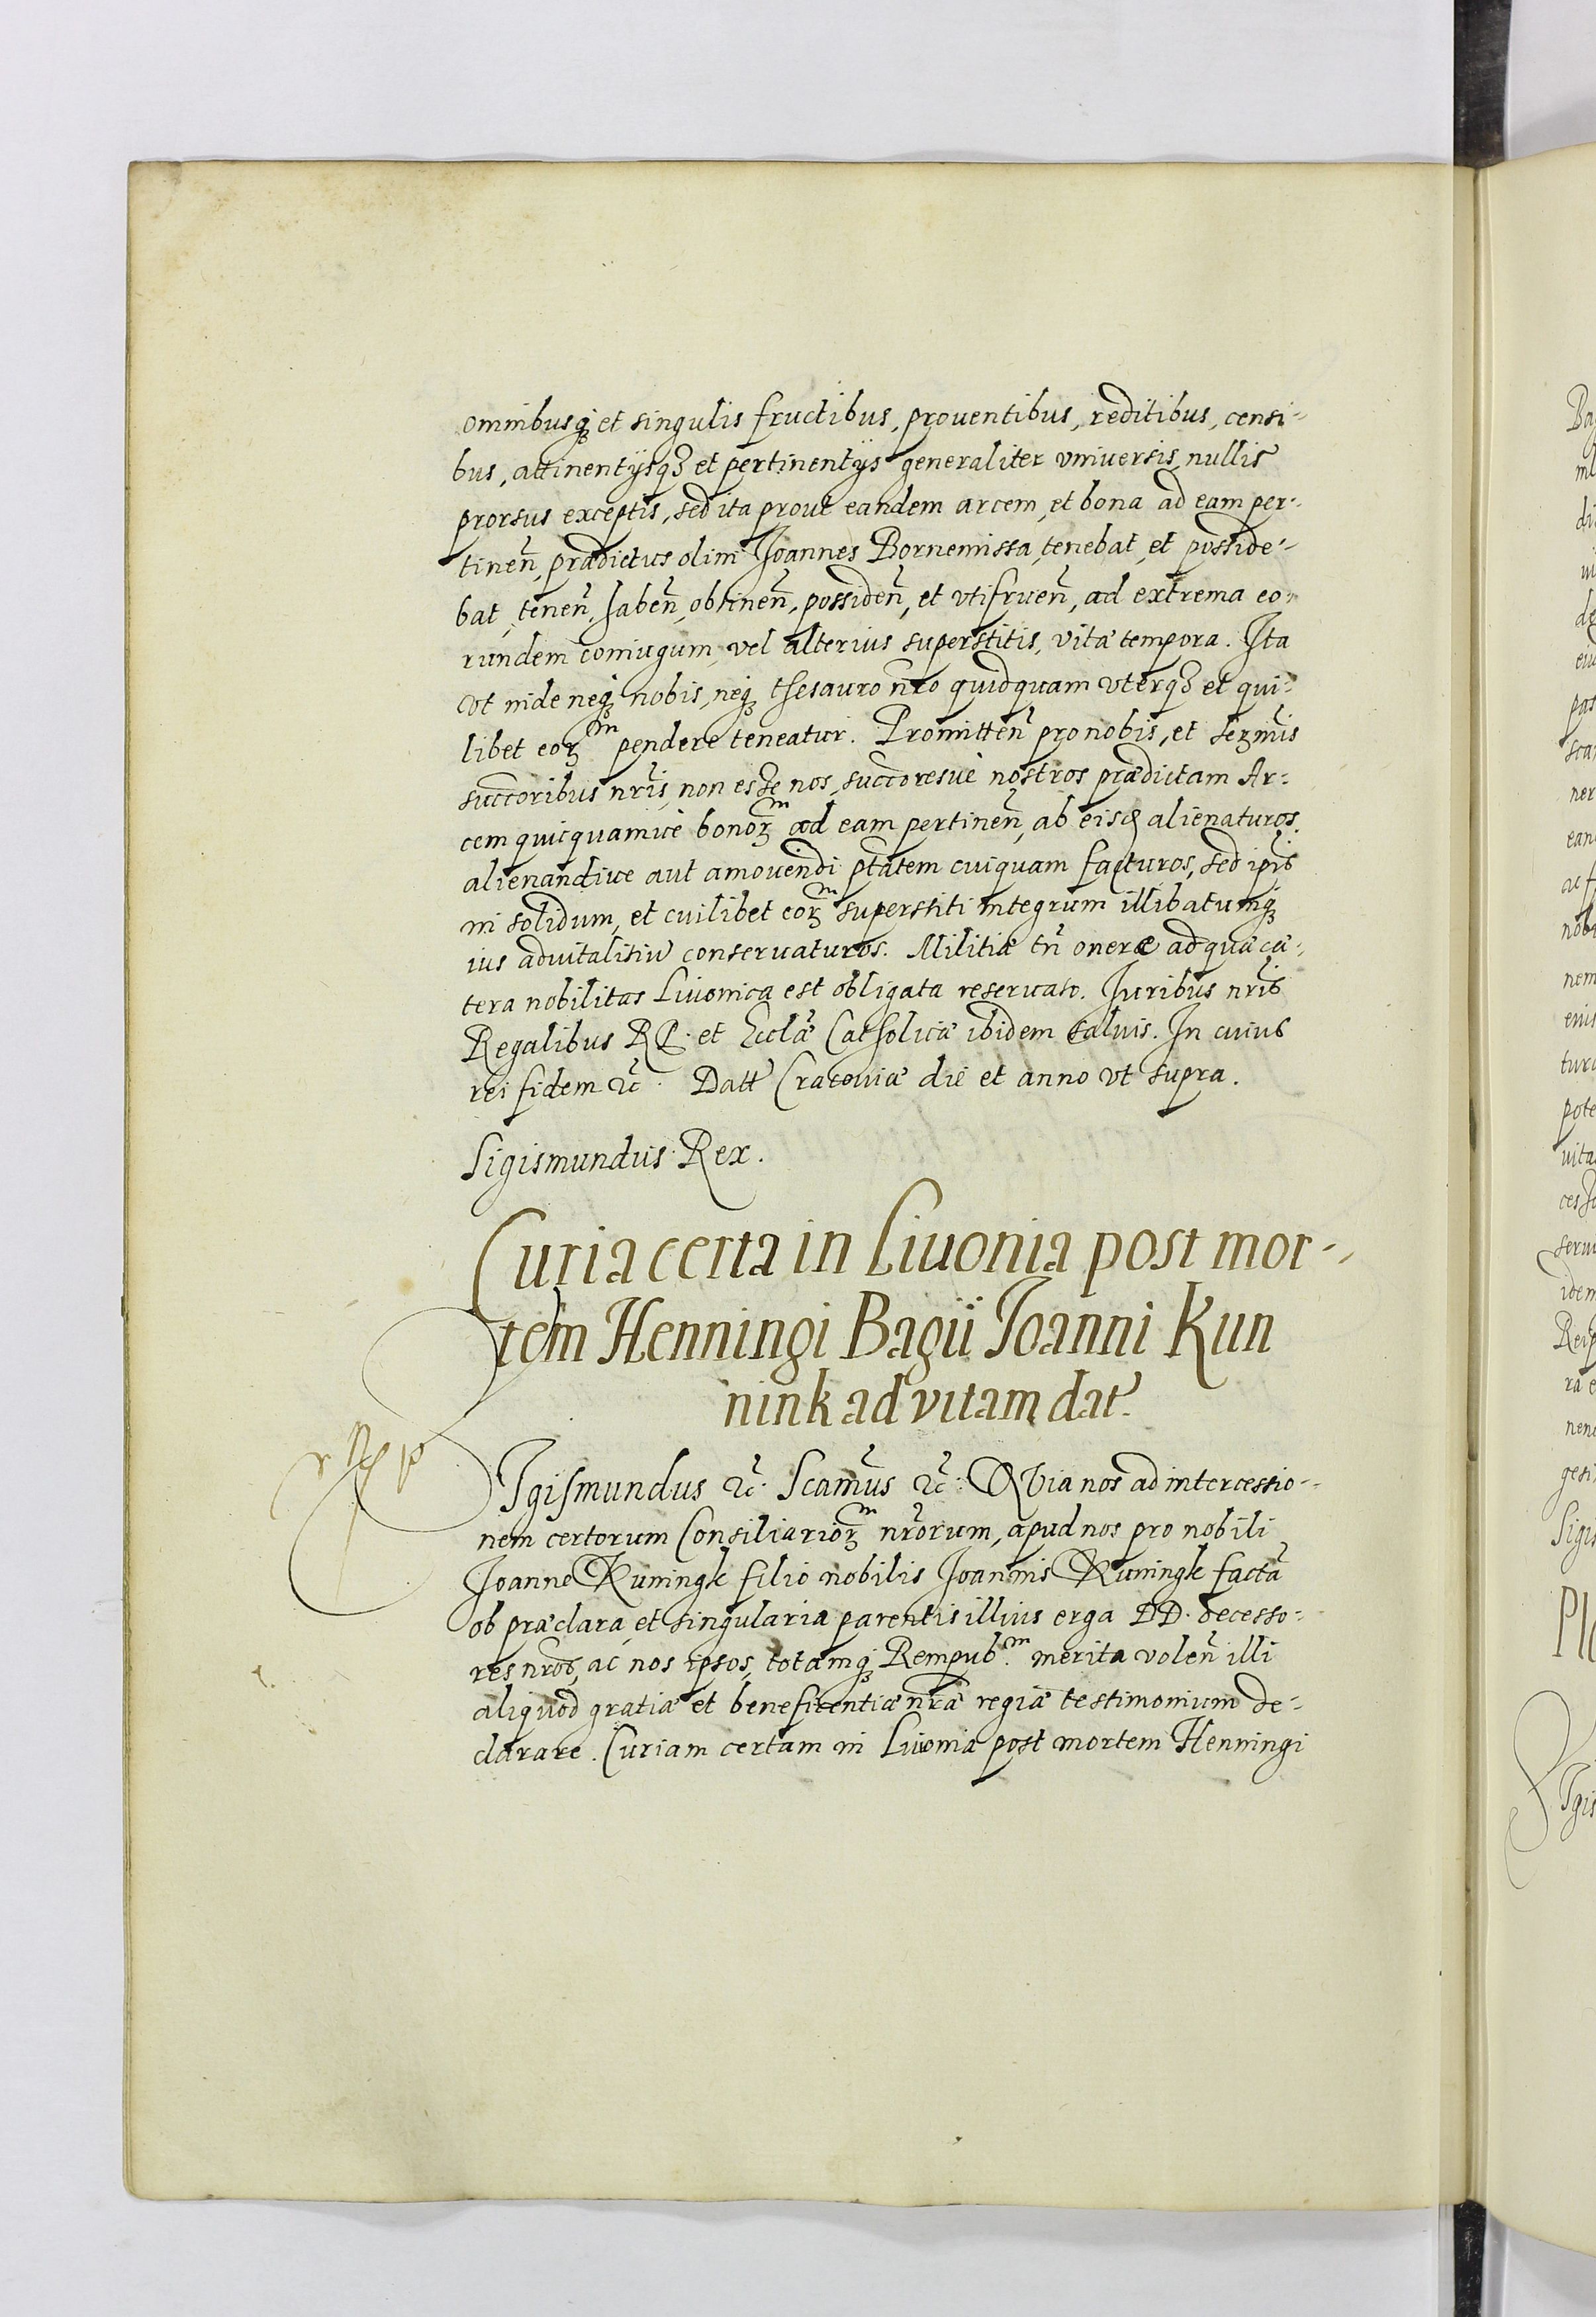 omnibusq₃ et singulis fructibus, prouentibus, reditibus, censi-
bus, attinentijsq₃ et pertinentijs generaliter vniuersis, nullis
prorsus exceptis, sed ita prout eandem arcem, et bona ad eam per-
tineñ, prædictus olim Joannes Bornemissa, tenebat, et posside-
bat, teneñ, habeñ, obtineñ, possideñ, et vtifrueñ, ad extrema eo-
rundem coniugum, vel alterius superstitis, vitæ tempora. Ita
vt inde neq₃ nobis, neq₃ thesauro nr̃o quidquam vterq₃ et qui-
libet eoꝝ^m pendere teneatur. Promitteñ pro nobis, et Serm̃is
succoribus nr̃is, non esse nos, succoresuè nostros prædictam Ar-
cem quicquamuè bonoꝝ^m ad eam pertineñ, ab eisd alienaturos,
alienandiue aut amouendi ptãtem cuiquam facturos, sed ip̃is
in solidum, et cuilibet eoꝝ^m superstiti integrum illibatumq₃
ius aduitalitiũ conseruaturos. Militiæ tñ onere ad quæ cæ-
tera nobilitas Liuonica est obligata reseruato. Iuribus nr̃is
Regalibus RP. et Ecclæ Catholicæ ibidem saluis. In cuius
rei fidem &c. Datt Cracouiæ die et anno vt supra.
Sigismundus Rex.
Curia certa in Liuonia post mor-
tem Henningi Bagii Joanni Kun
nink ad vitam dat.
SIgismundus &c. Scamũs &c. QVia nos ad intercessio-
nem certorum Consiliarioꝝ^m nr̃orum, apud nos pro nobili
Joanne Kuningk filio nobilis Joannis Kuningk factã
ob præclara, et singularia parentis illius erga DD. decesso-
res nr̃os, ac nos ipsos, totamq₃ Rempub.^m merita voleñ illi
aliquod gratiæ et beneficentiæ nr̃æ regiæ testimonium de-
clarare. Curiam certam in Liuonia post mortem Henningi